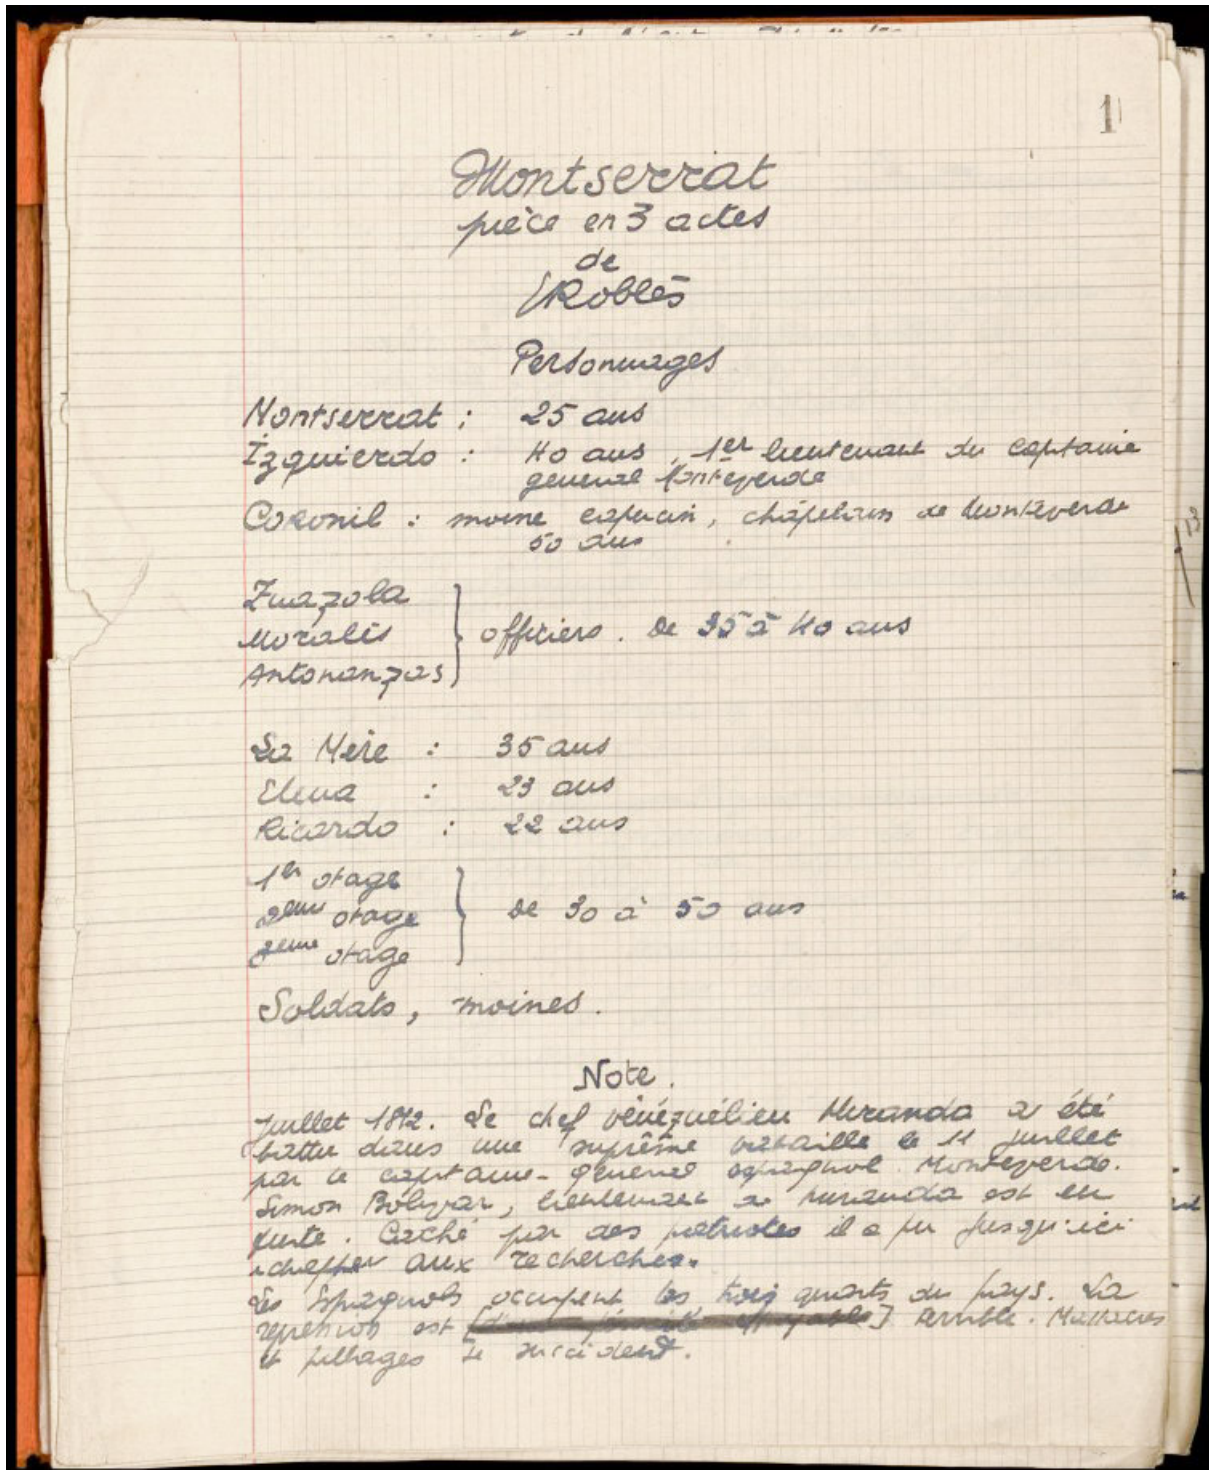 1
Montserrat
pièce en 3 actes
de
E Roblès
Personnages
Montserrat : 25 ans
Izquierdo : 40 ans, 1er lieutenant du capitaine
général Monteverde
Coronil : moine capucin, chapelain de Monteverde
50 ans
Zuazola
Moralès
Antonanzas
officiers. de 35 à 40 ans
La Mère : 35 ans
Elena : 23 ans
Ricardo : 22 ans
1er otage
2ème otage
3ème otage
de 30 à 50 ans
Soldats, moines.
Note.
Juillet 1812. Le chef vénézuélien Miranda a été
battu dans une suprême bataille le 11 juillet
par le capitaine-général espagnol Monteverde.
Simon Bolivar, lieutenant de Miranda est en
fuite. Caché par des patriotes il a pu jusqu'ici
échapper aux recherches.
Les Espagnols occupent les trois quarts du pays. La
répression est [d'une effroyable] terrible. Massacres
et pillages se succèdent.